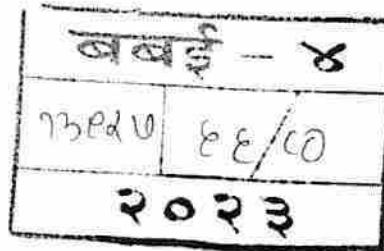 बबई - ४
१३९२७ ६६/८०
२०२३